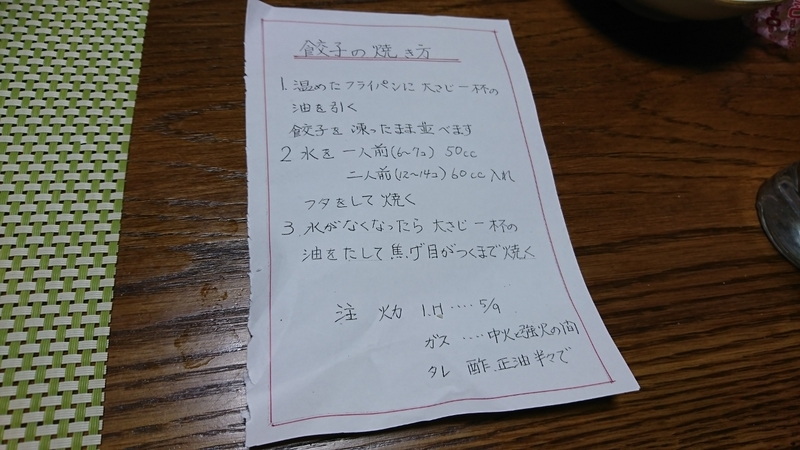 餃子の焼き方
1.温めたフライパンに大さじ一杯の
油を引く
餃子を凍ったまま並べます
2 水を一人前(6~7コ) 50cc
二人前(12~14コ) 60cc入れ
フタをして焼く
3.水がなくなったら大さじ一杯の
油をたして焦げ目がつくまで焼く
注 火力 I.H ‥‥ 5/9
ガス ‥‥中火と強火の間
タレ 酢.正油半々で